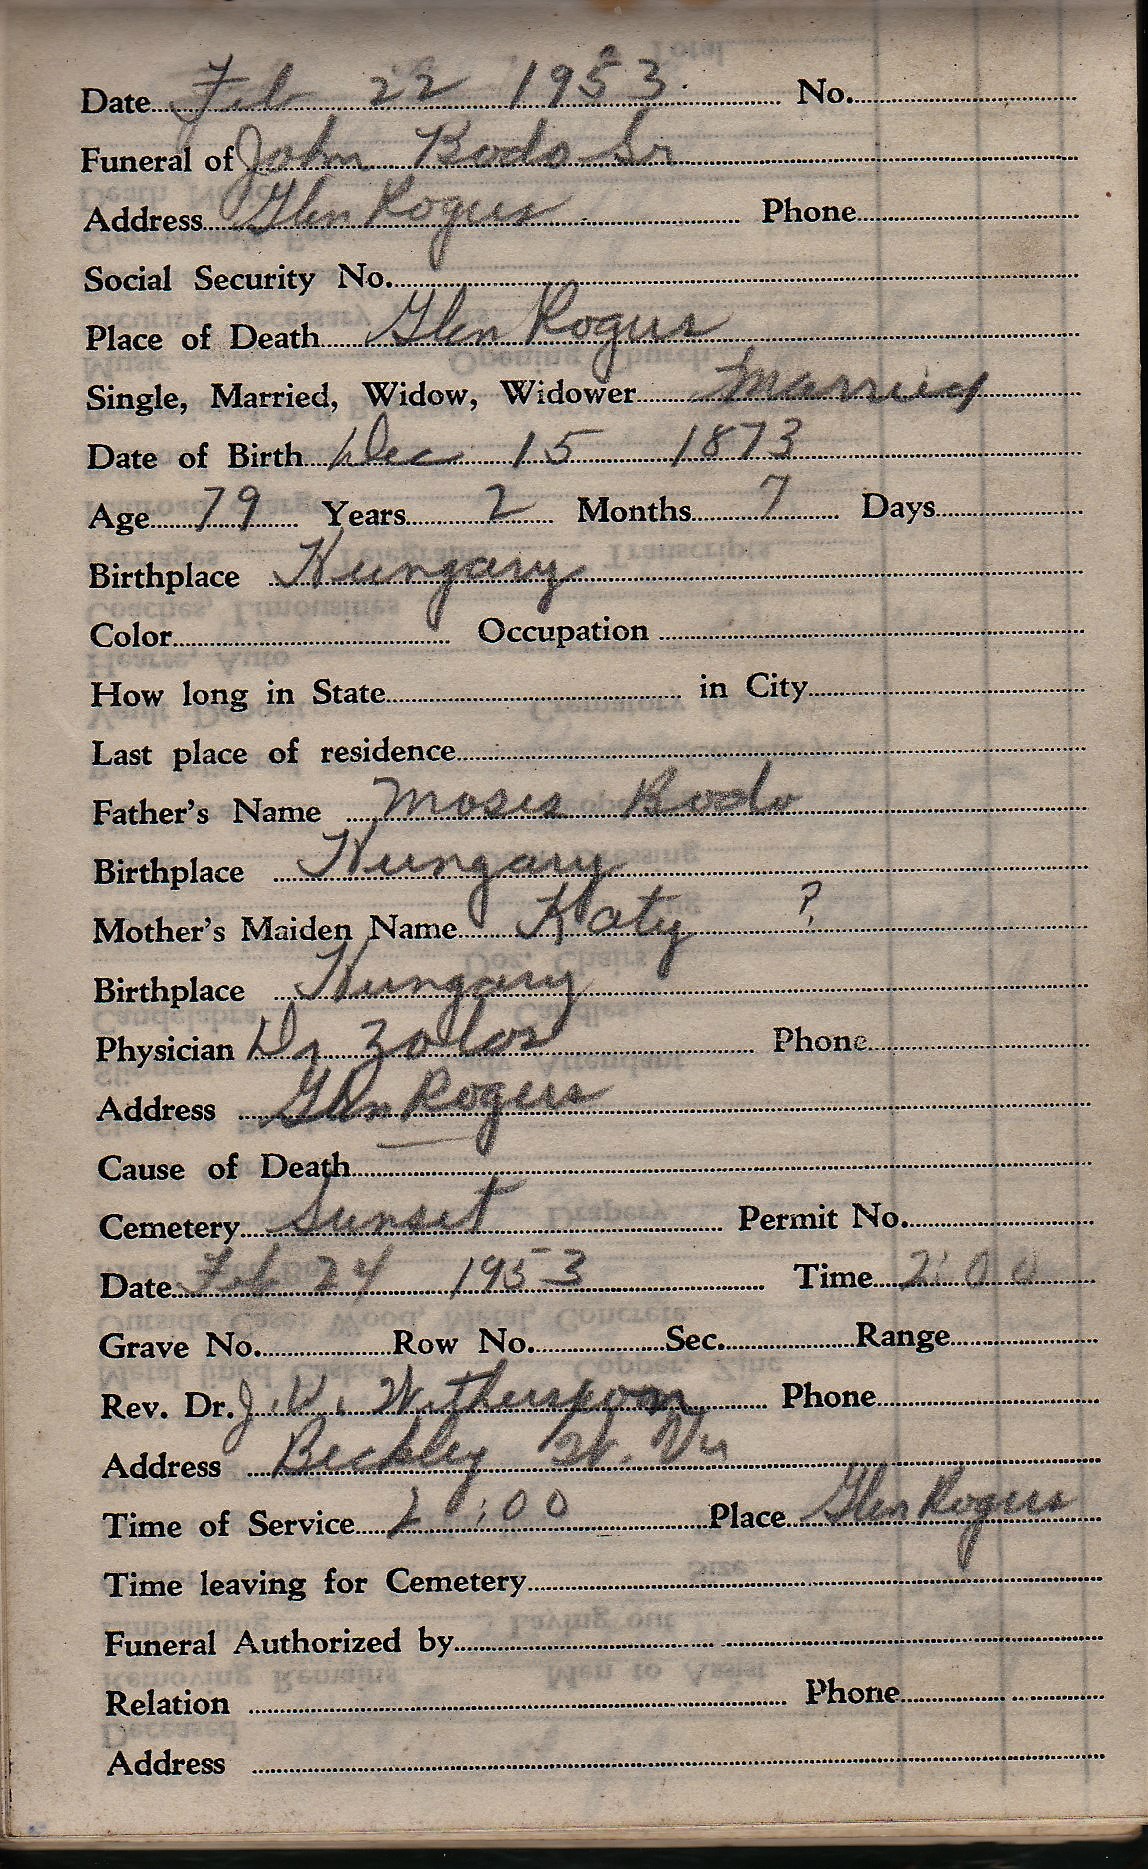 Date Feb 22 1953. No.
Funeral of John Bodo Sr
Address Glen Rogers Phone
Social Security No.
Place of Death Glen Rogers
Single, Married, Widow, Widower Married
Date of Birth Dec 15 1873
Age 79 Years 2 Months 7 Days
Birthplace Hungary
Color Occupation
How long in State in City
Last place of residence
Father's Name Moses Bodo
Birthplace Hungary
Mother's Maiden Name Katy ?
Birthplace Hungary
Physician Dr Phone
Address Glen Rogers
Cause of Death
Cemetery Sunset Permit No.
Date Feb 24 1953 Time 2:00
Grave No. Row No. Sec. Range
Rev. Dr. J. Witherspoon Phone
Address Beckley W. Va
Time of Service 2:00 Place Glen Rogers
Time leaving for Cemetery
Funeral Authorized by
Relation Phone
Address